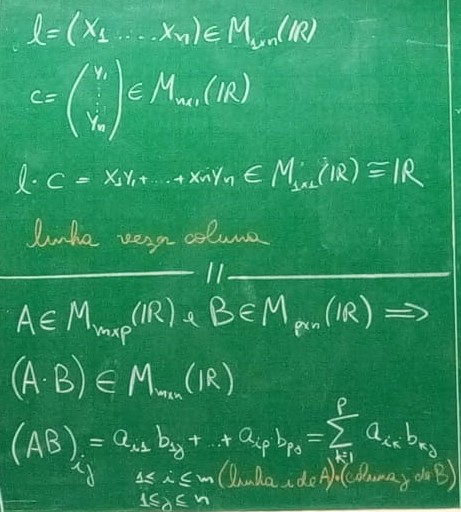 l = (x₁ ..... xₙ) ∈ M₁ₓₙ(ℝ)
c = (y₁ ⋮ yₙ) ∈ Mₙₓ₁(ℝ)
l · c = x₁y₁ + ... + xₙyₙ ∈ M₁ₓ₁(ℝ) ≡ ℝ
linha vezes coluna
//
A ∈ Mₘₓₚ(ℝ) e B ∈ Mₚₓₙ(ℝ) ⟹
(A·B) ∈ Mₘₓₙ(ℝ)
(AB)ᵢⱼ = aᵢ₁ b₁ⱼ + ... + aᵢₚ·bₚⱼ = ∑ₖ₌₁ᵖ aᵢₖ bₖⱼ
1 ≤ i ≤ m (linha i de A)·(coluna j de B)
1 ≤ j ≤ n